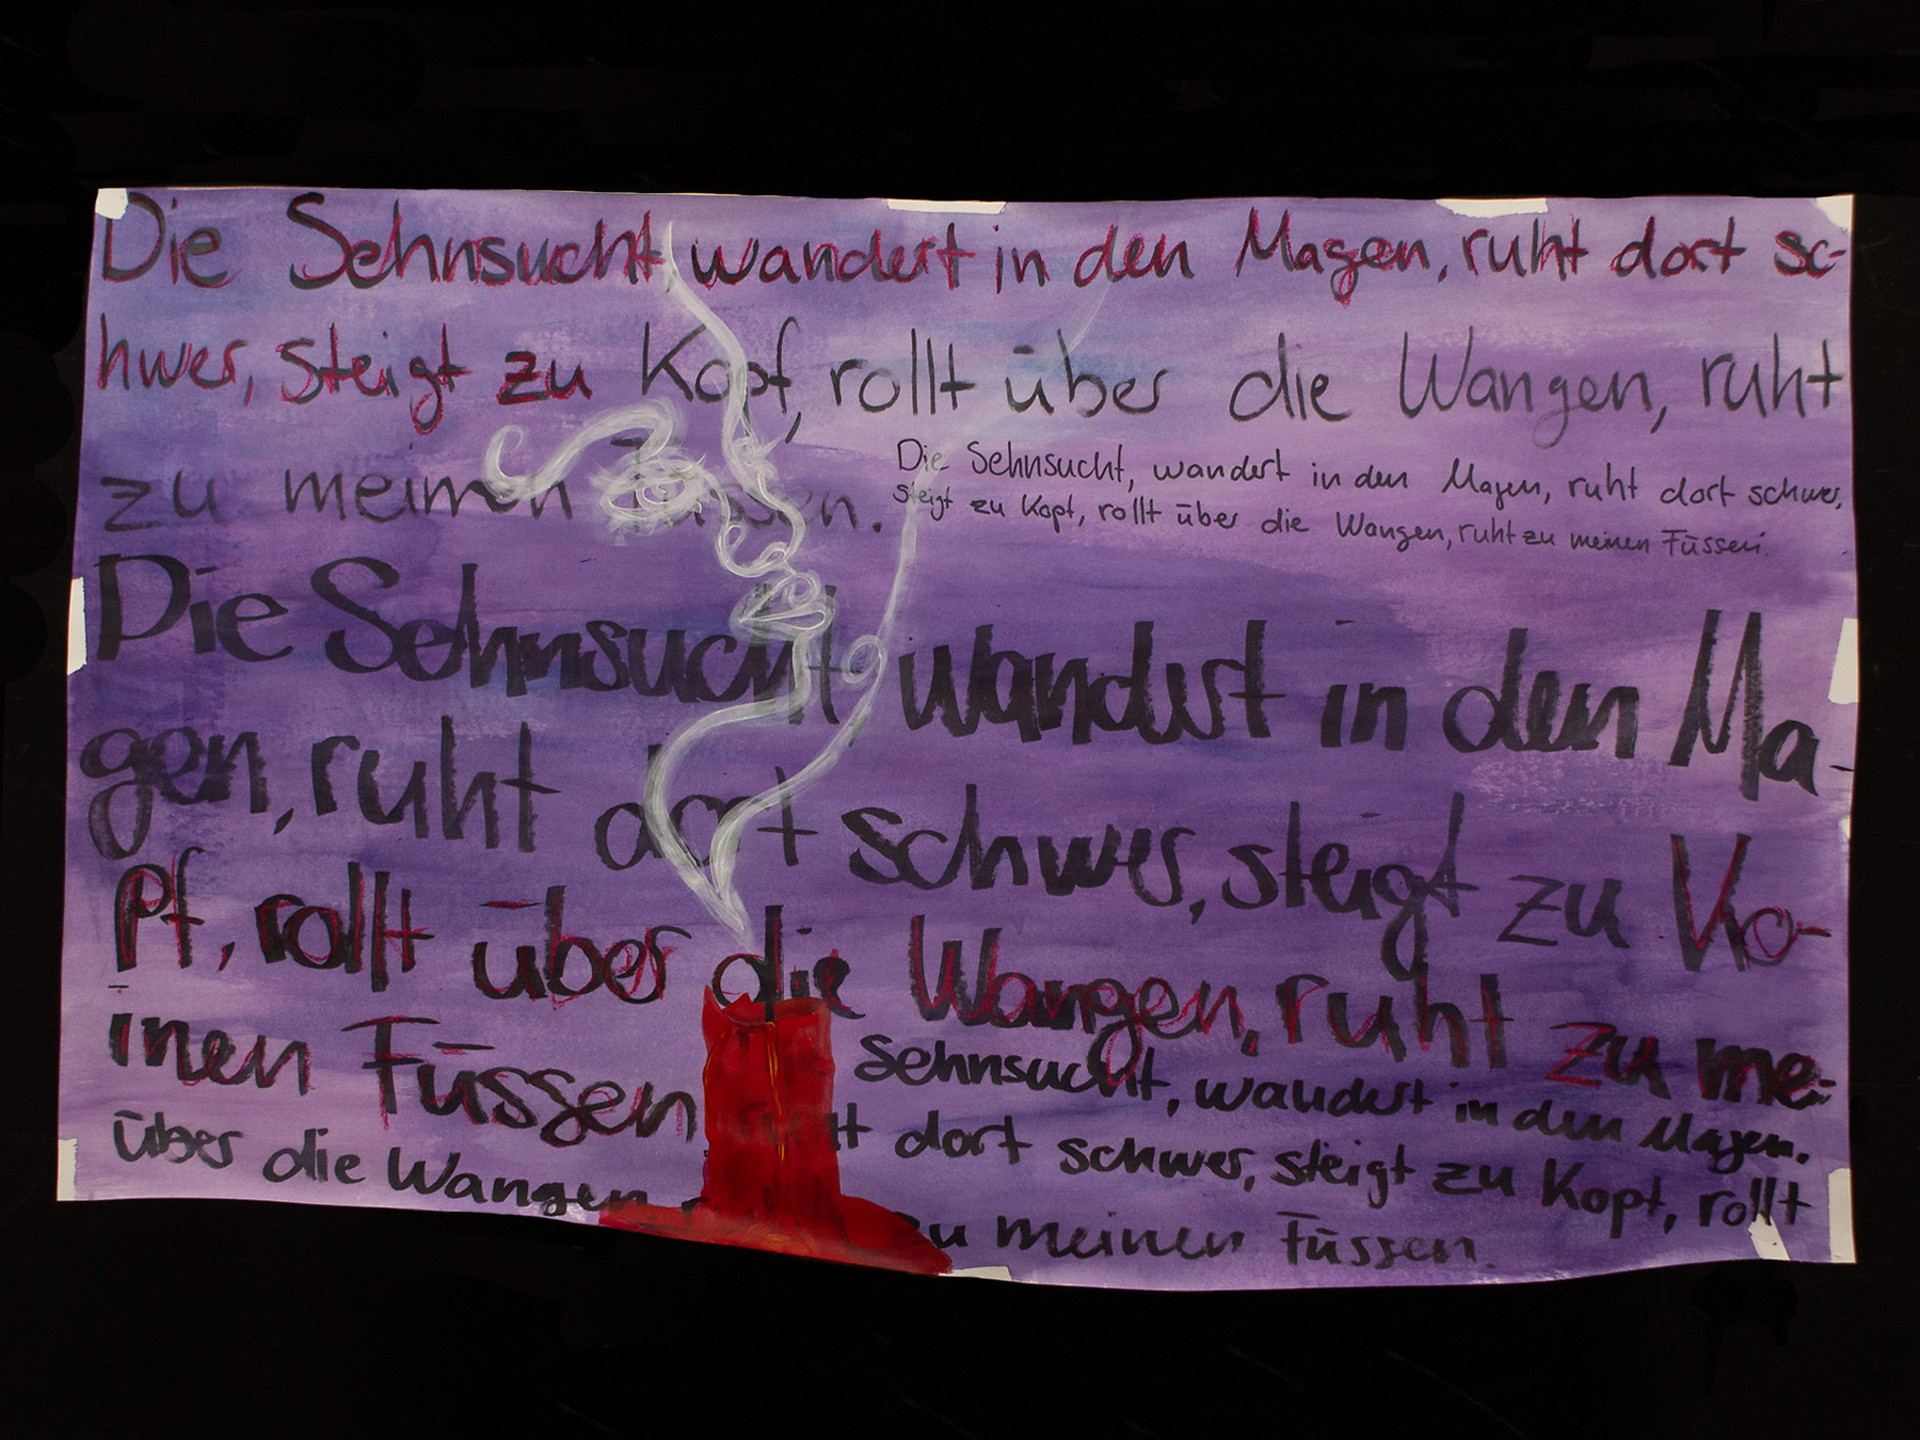 Die Sehnsucht, wandert in den Magen, ruht dort sc-
hwer, steigt zu Kopf, rollt über die Wangen, ruht
zu meinen Füssen.
Die Sehnsucht, wandert in den Magen, ruht dort schwer,
steigt zu Kopf, rollt über die Wangen, ruht zu meinen Füssen.
Die Sehnsucht wandert in den Ma-
gen, ruht dort schwer, steigt zu Ko-
pf, rollt über die Wangen, ruht zu me-
inen Füssen
Sehnsucht, wandert in den Magen,
dort schwer, steigt zu Kopf, rollt
über die Wangen zu meinen Füssen.